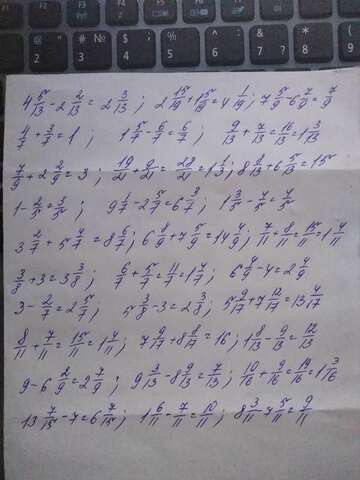 @ № # $ % ^ & * (
2 3 4 5 6 7 8 9
4 5/13 - 2 2/13 = 2 3/13; 2 15/19 + 15/19 = 4 1/19; 7 5/9 - 6 7/9 = 7/9
4/7 + 3/7 = 1; 1 5/7 - 6/7 = 6/7; 9/13 + 7/13 = 16/13 = 1 3/13
7/9 + 2 2/9 = 3; 19/21 + 9/21 = 28/21 = 1 1/3; 8 8/13 + 6 5/13 = 15
1 - 2/5 = 3/5; 9 1/7 - 2 5/7 = 6 3/7; 1 3/5 - 4/5 = 4/5
3 2/7 + 5 4/7 = 8 6/7; 6 8/9 + 7 5/9 = 14 4/9; 7/11 + 8/11 = 15/11 = 1 4/11
3/8 + 3 = 3 3/8; 6/7 + 5/7 = 11/7 = 1 4/7; 6 4/9 - 4 = 2 4/9
3 - 2/7 = 2 5/7; 5 3/8 - 3 = 2 3/8; 5 9/17 + 7 12/17 = 13 4/17
8/11 + 7/11 = 15/11 = 1 4/11; 7 9/17 + 8 8/17 = 16; 1 8/13 - 9/13 = 12/13
9 - 6 2/9 = 2 7/9; 9 3/13 - 8 9/13 = 7/13; 10/16 + 9/16 = 19/16 = 1 3/16
13 7/15 - 7 = 6 7/15; 1 6/11 - 7/11 = 10/11; 8 3/11 - 7 5/11 = 9/11